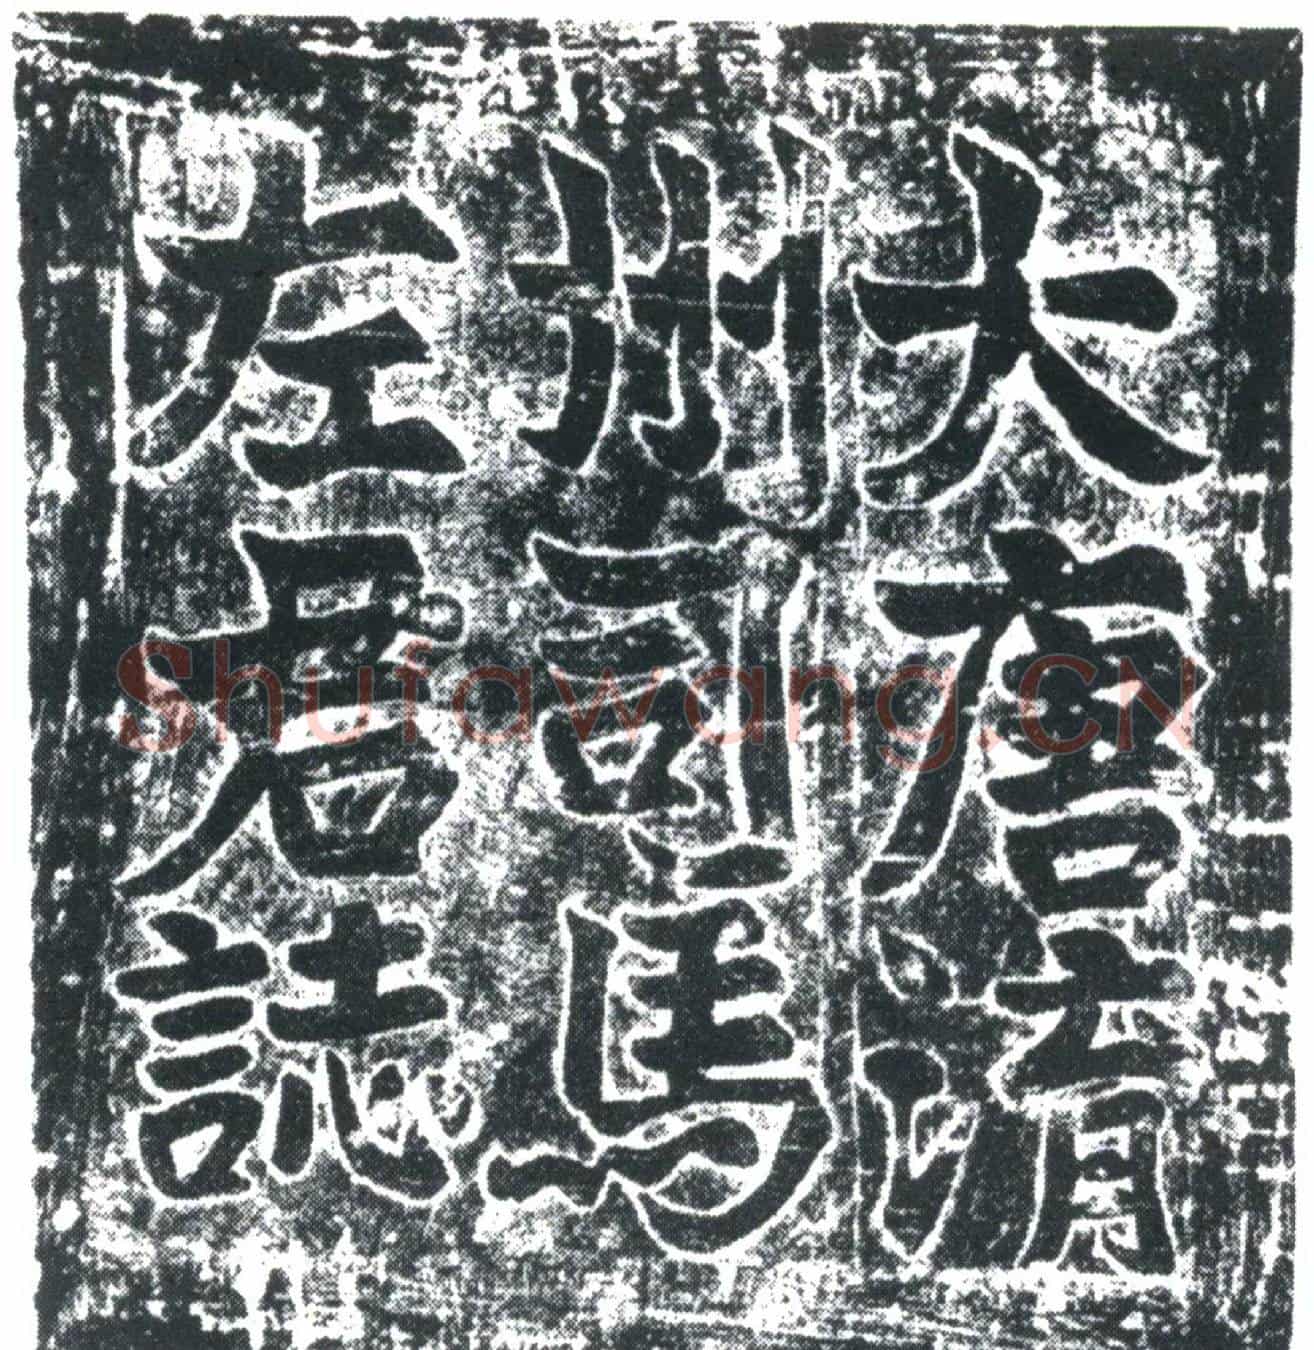 大唐淯
州司馬
左君誌
Shufawang.CN